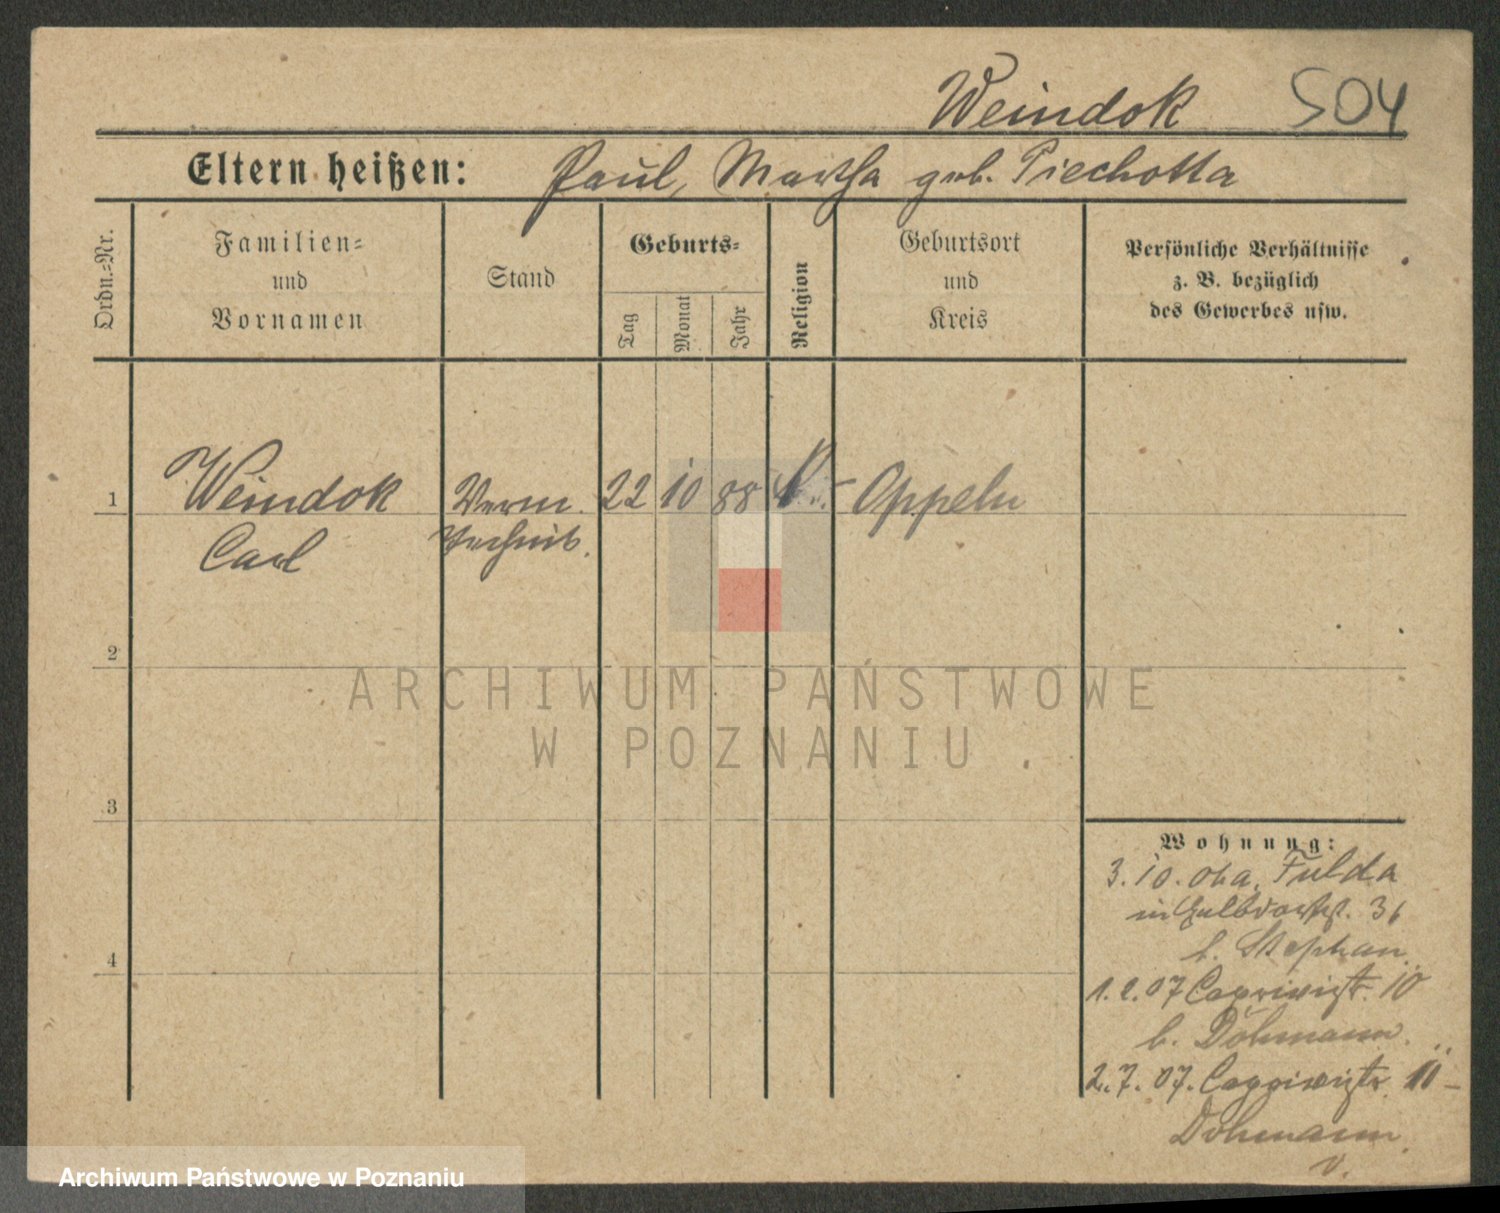 Weindok 504
Eltern heißen: Paul, Martha geb. Piechotta
Ordn.=Nr.
Familien=
und
Vornamen
Stand
Geburts=
Tag
Monat
Jahr
Religion
Geburtsort
und
Kreis
Persönliche Verhältnisse
z. B. bezüglich
des Gewerbes usw.
1 Weindok Verm. 22 10 88 Oppeln
Carl Technik.
2
3
4
ARCHIWUM PAŃSTWOWE
W POZNANIU
Wohnung:
3. 10. 06 a. Fulda
in 36
b. Stephan
1. 2. 07 Caprivistr. 10
b. Döhmann.
2. 7. 07. Caprivistr. 11 -
Döhmann.
v.
Archiwum Państwowe w Poznaniu